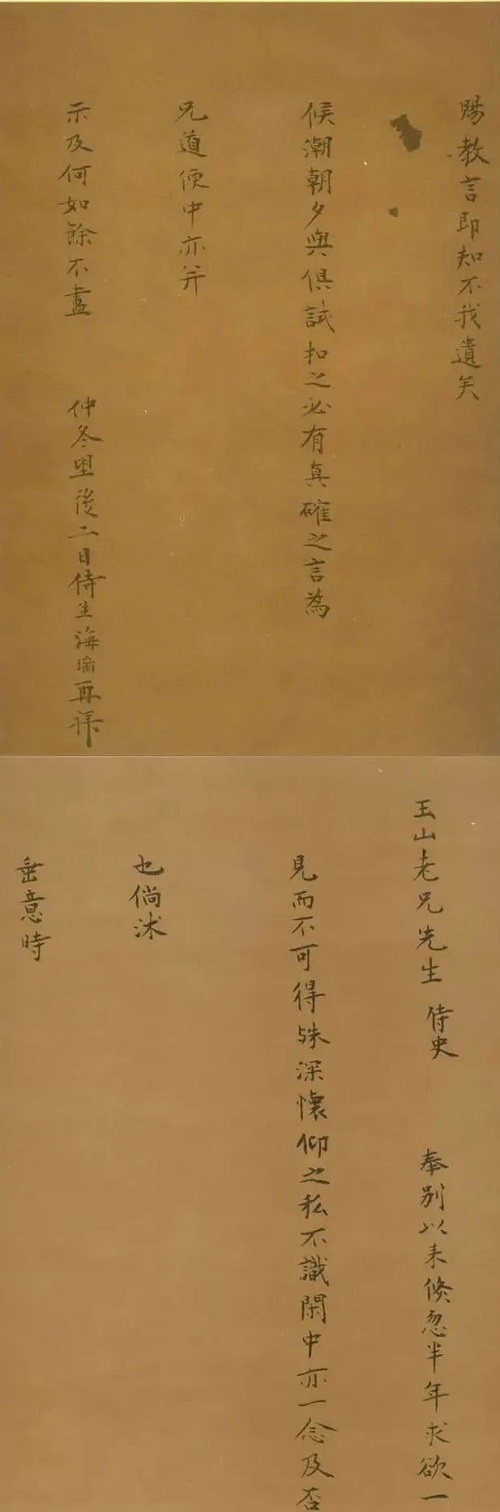 賜教言即知不我遺矣
候潮朝夕與俱試扣之必有真確之言為
兄道便中亦并
示及何如餘不盡 仲冬朢後二日侍生海瑞再拜
玉山老兄先生 侍史 奉別以来倏忽半年求欲一
見而不可得殊深懷仰之私不識閑中亦一念及否
也倘沐
垂意時